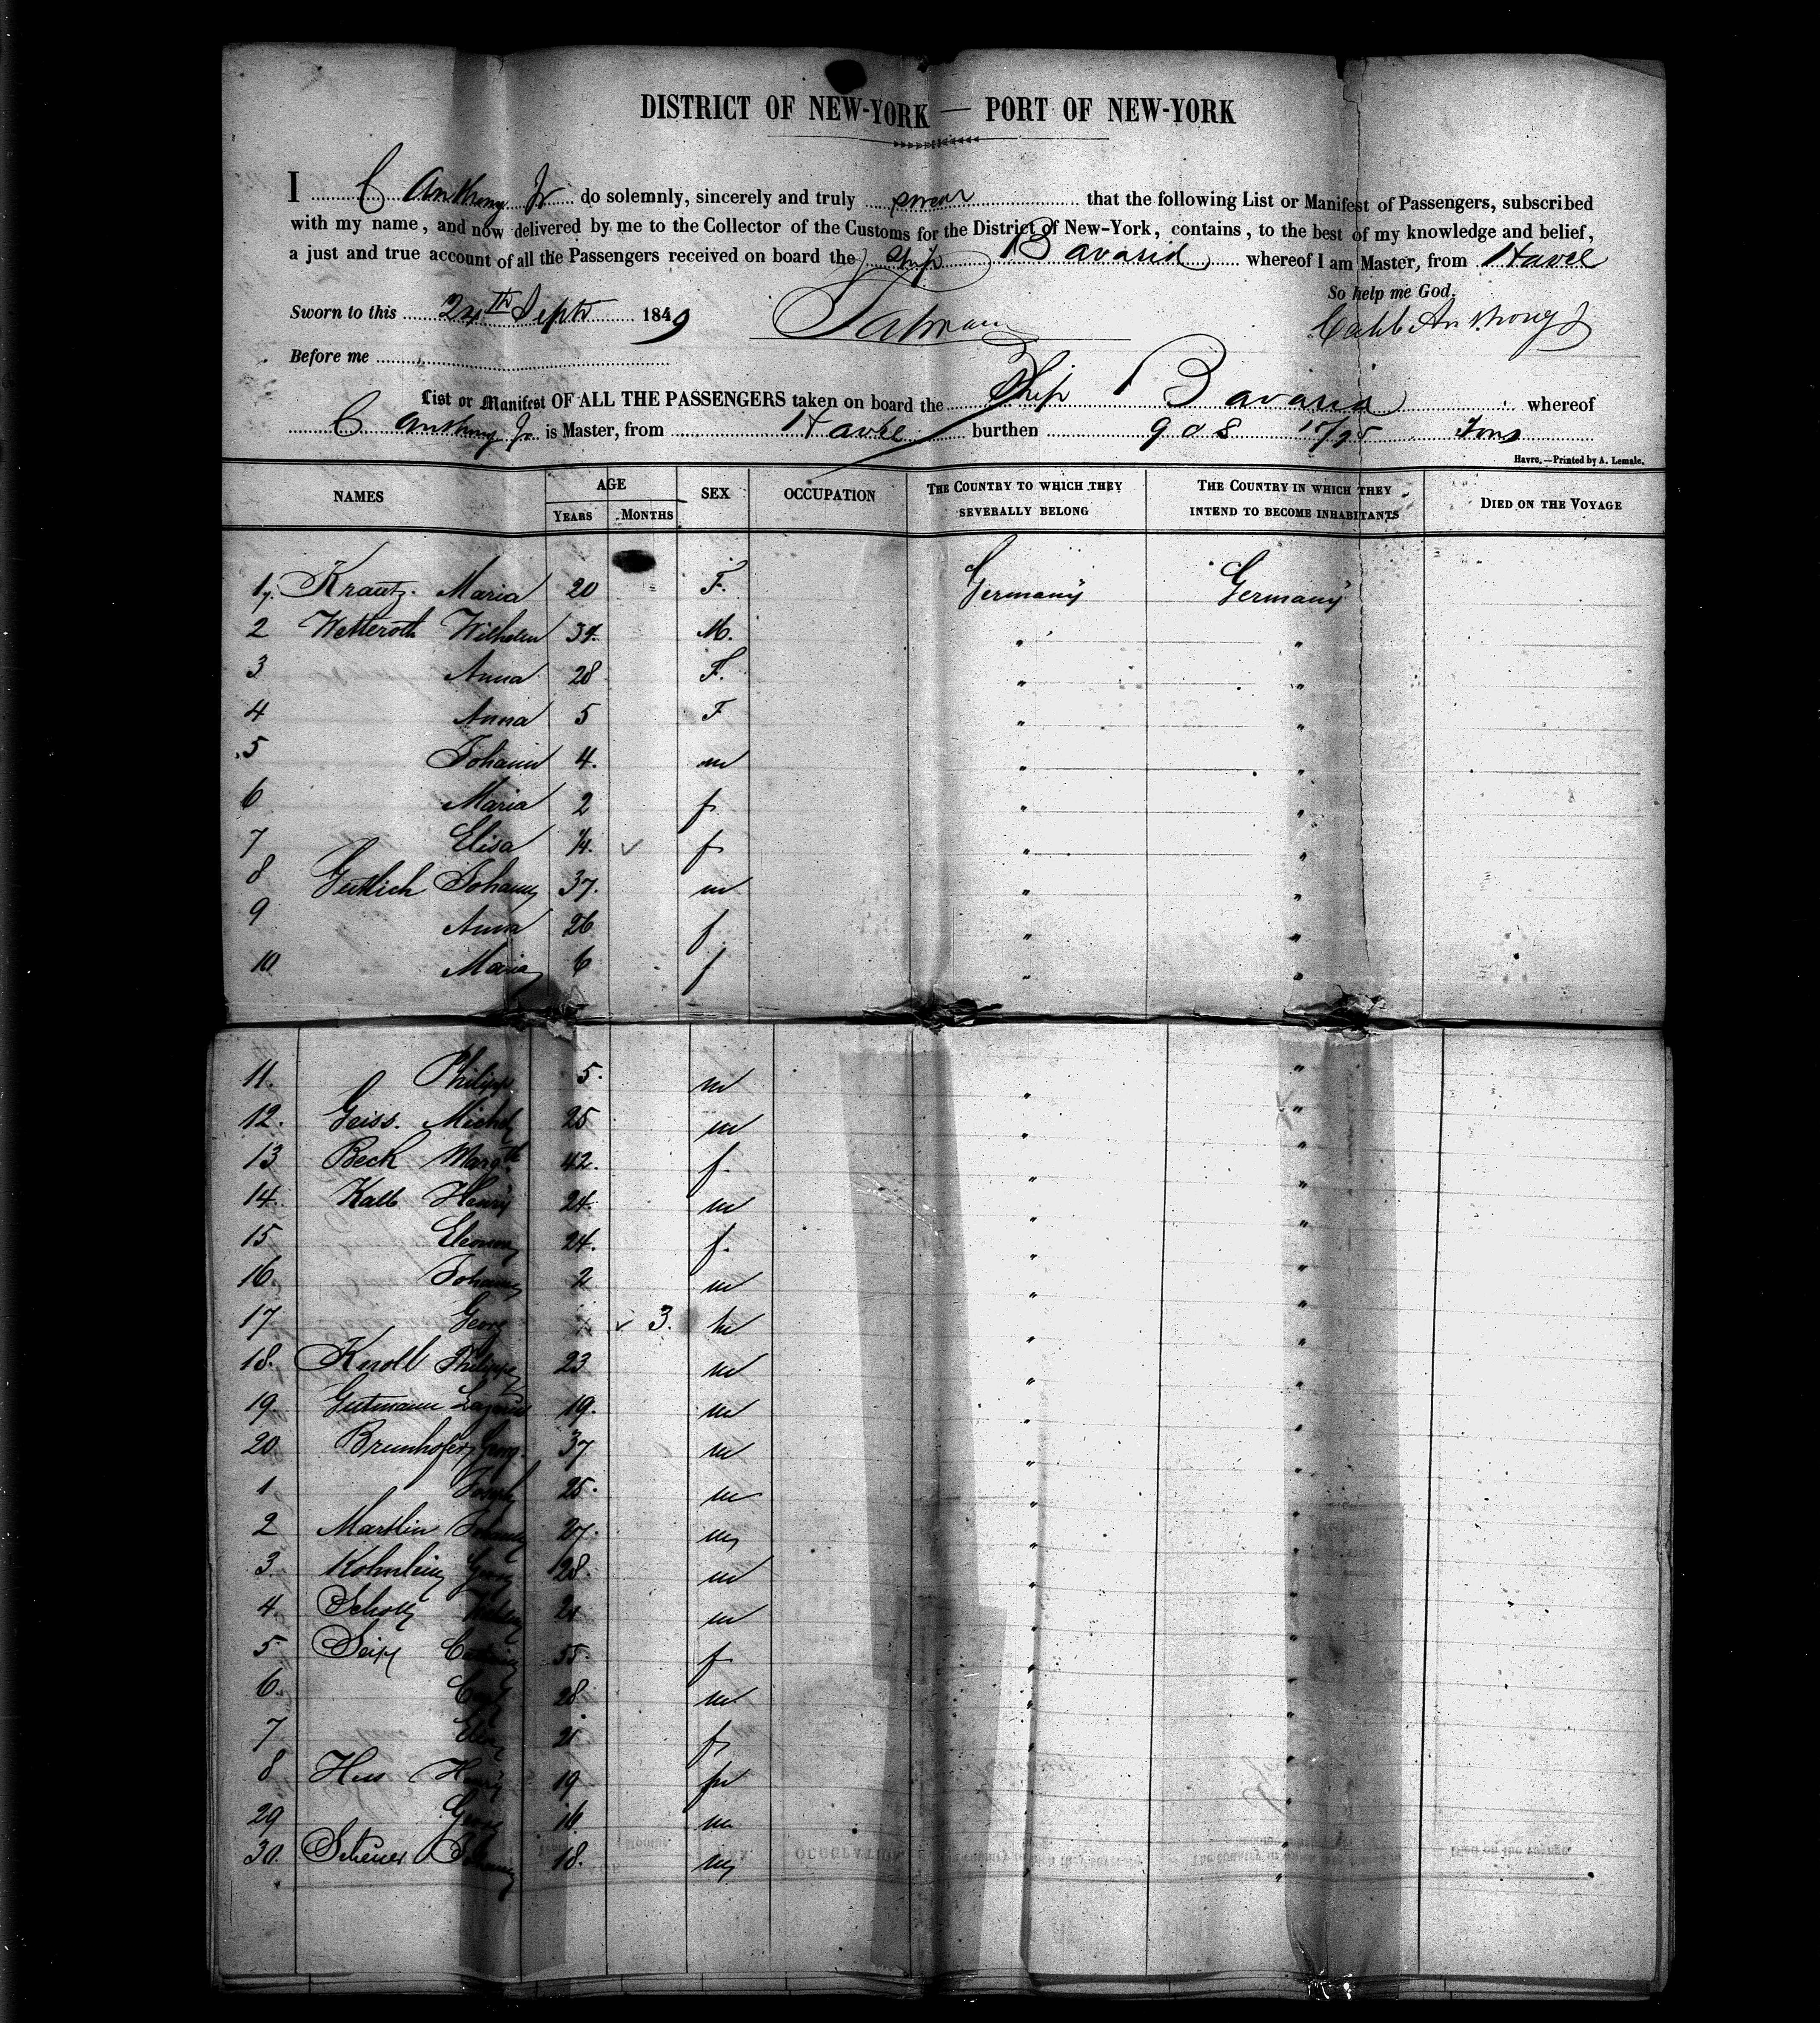 DISTRICT OF NEW-YORK — PORT OF NEW-YORK
I C Anthony Jr do solemnly, sincerely and truly swear that the following List or Manifest of Passengers, subscribed
with my name, and now delivered by me to the Collector of the Customs for the District of New-York, contains, to the best of my knowledge and belief,
a just and true account of all the Passengers received on board the Ship Bavaria whereof I am Master, from Havre
So help me God.
Sworn to this 24th Septr 1849 Caleb Anthony Jr
Before me
List or Manifest OF ALL THE PASSENGERS taken on board the Ship Bavaria whereof
C Anthony Jr is Master, from Havre burthen 908 Tons
Havre.—Printed by A. Lemale.
NAMES AGE SEX OCCUPATION THE COUNTRY TO WHICH THEY THE COUNTRY IN WHICH THEY DIED ON THE VOYAGE
YEARS MONTHS SEVERALLY BELONG INTEND TO BECOME INHABITANTS
1 Krautz. Maria 20 F. Germany Germany
2 Wetteroth Wilhelm 34. M. " "
3 Anna 28 F. " "
4 Anna 5 F " "
5 Johann 4. m " "
6 Maria 2 f " "
7 Elisa f " "
8 Johann 37. m " "
9 Anna 26 f " "
10 Maria 6 f " "
11. Philipp 5. m " "
12. Geiss. Michel 25 m " "
13 Beck Margth 42. f. " "
14. Kalb Henry 24. m " "
15 24. f. " "
16 Johann 2 m " "
17 Georg 3. m " "
18. Knoll Philipp 23 m " "
19. Gutmann Lazarus 19. m " "
20 Brunhofer Georg. 37 m " "
1 Joseph 25. m " "
2 Martlin Johann 27. m " "
3. Kohnlein Georg 28. m " "
4. m " "
5 55. f " "
6. Carl 28 m " "
7 f " "
8 Hess Henry 19 m " "
29 Georg 16 m " "
30. Scheuer Johann 18. m " "